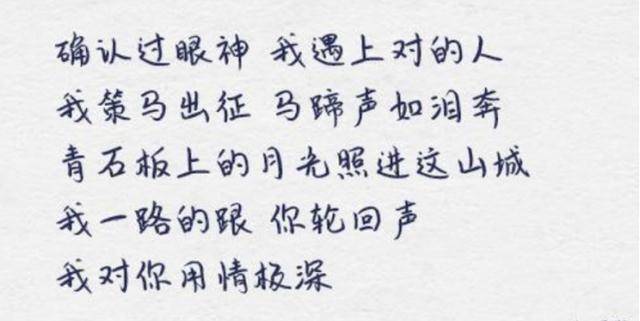 确认过眼神 我遇上对的人
我策马出征 马蹄声如泪奔
青石板上的月光照进这山城
我一路的跟 你轮回声
我对你用情极深